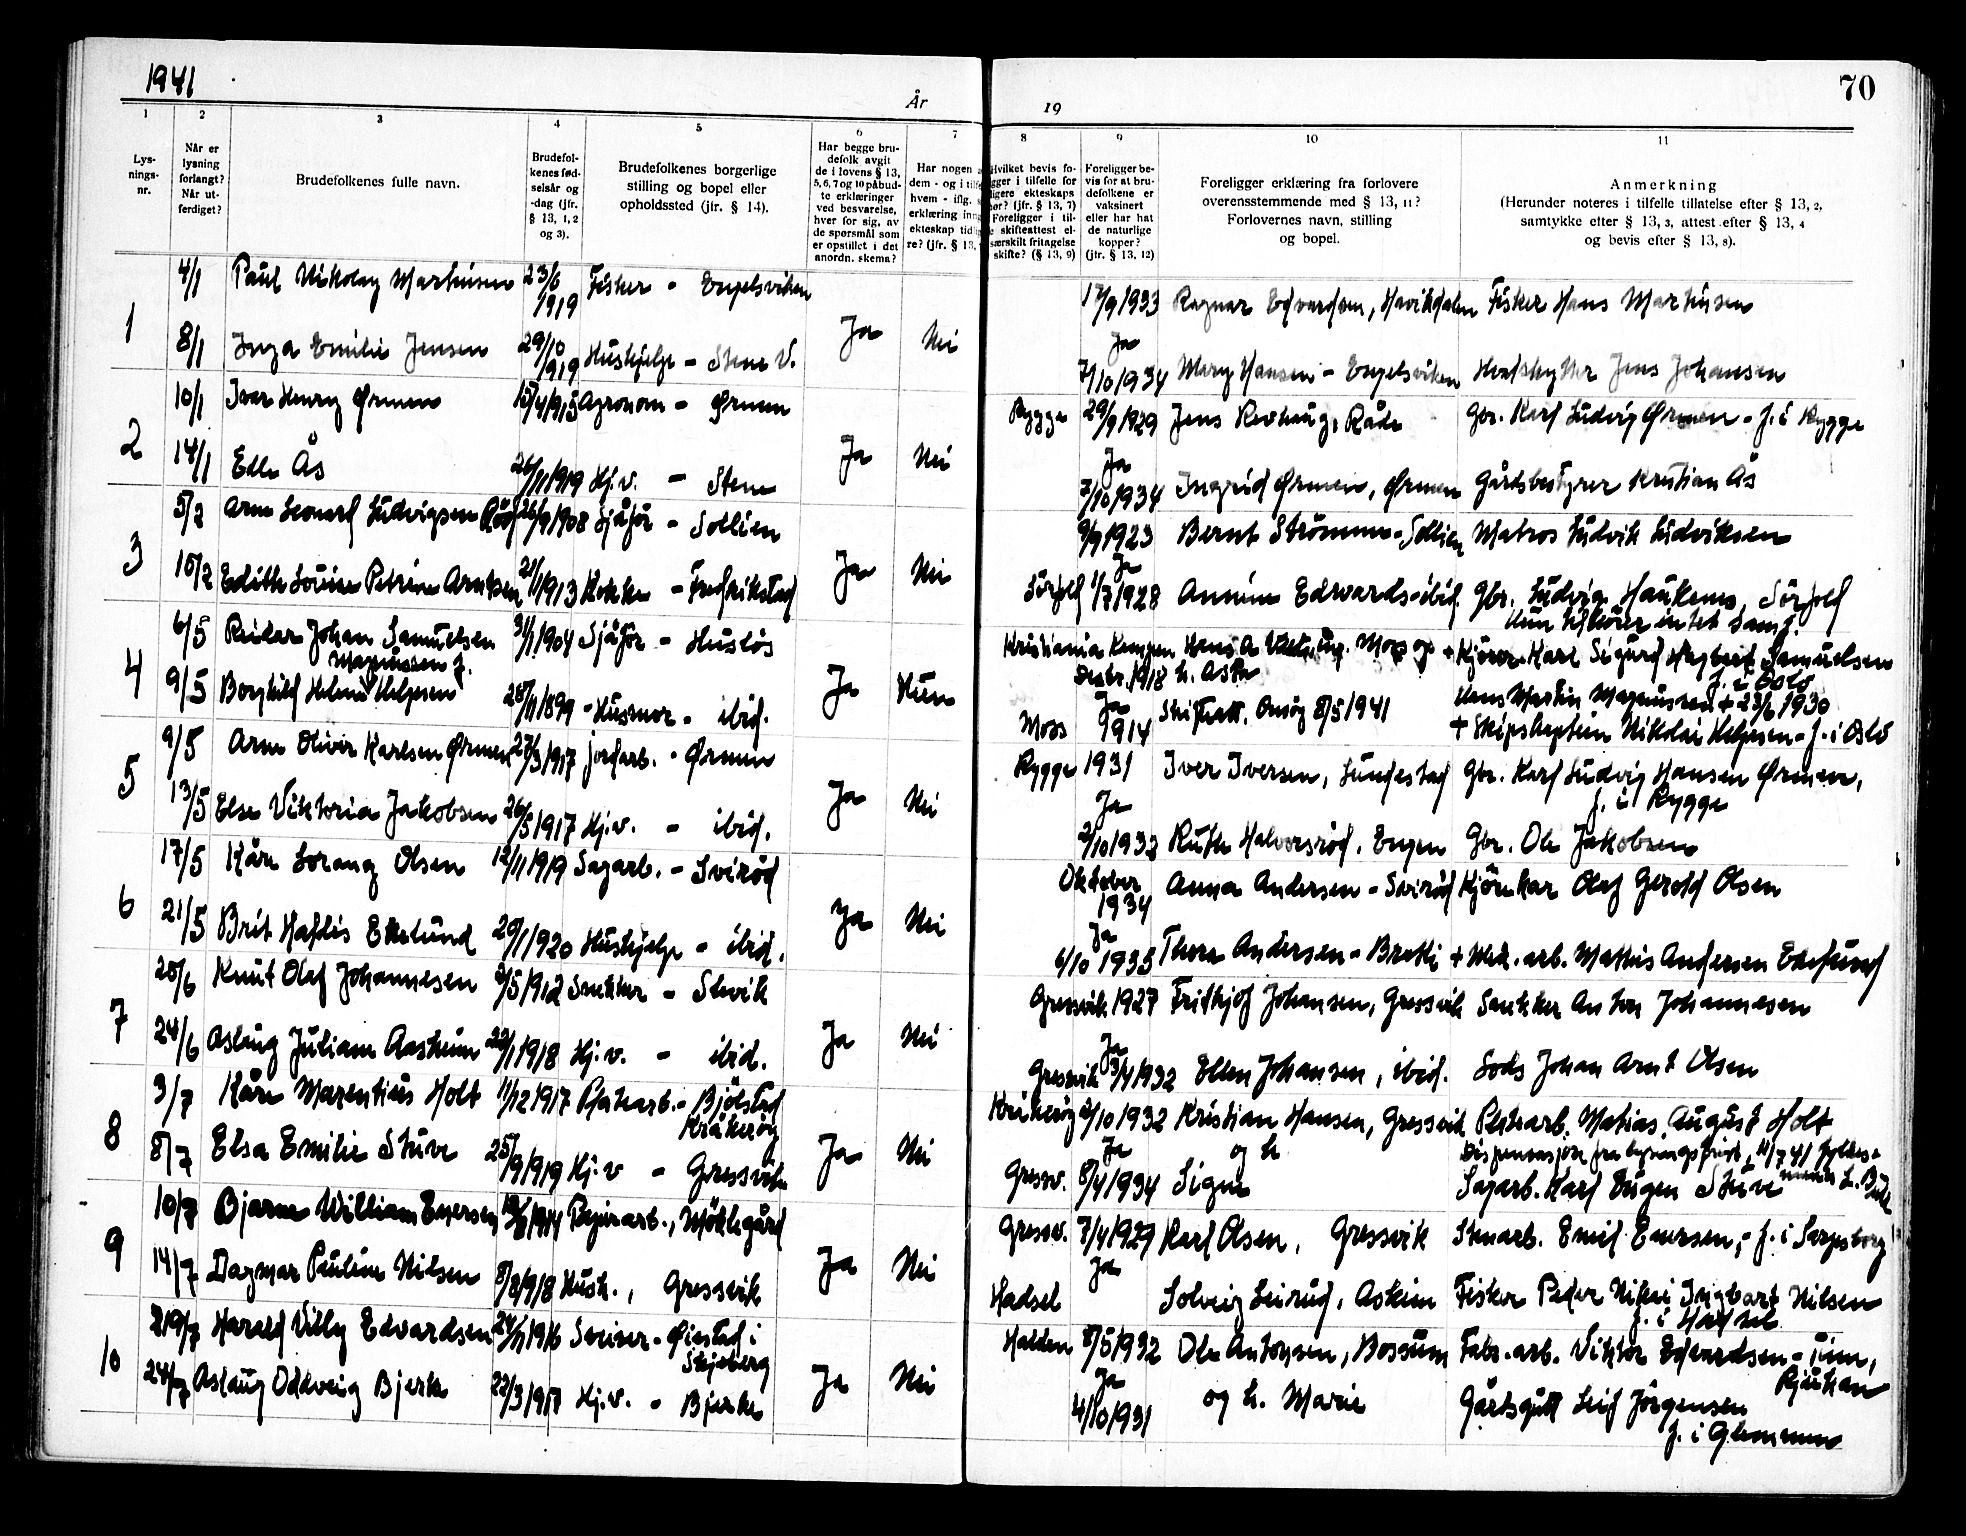 1941
År
19
70
1
2
3
4
5
6
7
8
9
10
11
Lys-
nings-
nr.
Når er
lysning
forlangt?
Når ut-
ferdiget?
Brudefolkenes fulle navn.
Brudefol-
kenes fød-
selsår og
-dag (jfr.
§ 13, 1, 2
og 3).
Brudefolkenes borgerlige
stilling og bopel eller
opholdssted (jfr. § 14).
Har begge bru-
defolk avgit
de i lovens § 13,
5, 6, 7 og 10 påbud-
te erklæringer
ved besvarelse,
hver for sig, av
de spørsmål som
er opstillet i det
anordn. skema?
Har nogen a
dem - og i tilfe
hvem - iflg. s
erklæring inng
ekteskap tidlig
re? (jfr. § 13,
Hvilket bevis fo-
gger i tilfelle for
ligere ekteskaps
hør? (jfr. § 13, 7)
Foreligger i til-
e skifteattest el-
særskilt fritagelse
skifte? (§ 13, 9)
Foreligger be-
vis for at bru-
defolkene er
vaksinert
eller har hat
de naturlige
kopper?
(jfr. § 13, 12)
Foreligger erklæring fra forlovere
overensstemmende med § 13, 11?
Forlovernes navn, stilling
og bopel.
Anmerkning
(Herunder noteres i tilfelle tillatelse efter § 13, 2,
samtykke efter § 13, 3, attest efter § 13, 4
og bevis efter § 13, 8).
1
4/1 Paul Nikolay Martinsen 23/6 1919 Fisker - Engelsviken 17/9 1933 Ragnar Edvardsen, Fisker Hans Martinsen
8/1 Inga Emilie Jensen 29/10 1919 Hushjelp - Stene V. Ja Nei Ja
7/10 1934 Mary Hansen - Engelsviken Jens Johansen
2
10/1 Ivar Henry Ørmen 15/4 1915 Agronom - Ørmen Rygge 29/9 1929 Jens Råde Gbr. Karl Ludvig Ørmen - f. i Rygge
14/1 Edle Ås 26/11 1919 Hj.v. - Stene Ja Nei Ja
7/10 1934 Ingrid Ørmen, Ørmen Gårdsbestyrer Kristian Ås
3
5/2 Arne Leonard Ludvigsen 26/9 1908 Sjåfør - Sollien 9/9 1923 Bernt Strømnes - Sollien Matros Ludvik Ludviksen
15/2 Edith Louise Petrine Arntsen 21/1 1913 Kokke - Fredrikstad Ja Nei Ja
Sörfold 1/7 1928 Annine Edvards - ibid. Gbr. Ludvig Haukenes, Sörfold
Hun tilhører intet samf.
4
6/5 Reidar Johan Samuelsen 31/1 1904 Sjåför - Husløs Kristiania Moss og + Kjörer Karl Sigurd Samuelsen
f. i Oslo
Magnussen f.
9/5 Borghild Helene Helgesen 28/11 1899 - Husmor - ibid. Ja Hun Moss Ja 1914 Ansög 8/5 1941 Hans Martin Magnussen + 23/6 1930
+ Skipskaptein Nikolai Helgesen - f. i Oslo
5
9/5 Arne Oliver Karlsen Ørmen 27/3 1917 jordarb. - Ørmen Rygge 1931 Iver Iversen, Lundestad Gbr. Karl Ludvig Hansen Ørmen,
f. i Rygge
13/5 Else Viktoria Jakobsen 26/5 1917 Hj.v. - ibid. Ja Nei Ja
2/10 1932 Ruth Halvorsröd, Engen Gbr. Ole Jakobsen
6
17/5 Kåre Lorang Olsen 12/11 1919 Sagarb. - Sviröd Oktober 1934 Anna Andersen - Sviröd Kjörekar Olaf Gerold Olsen
21/5 Brit Haflis Ekelund 29/1 1920 Hushjelp - ibid. Ja Nei Ja
6/10 1935 Thora Andersen - + Mek. arb. Mattis Andersen Ekelund
7
20/6 Knut Olaf Johannesen 2/5 1912 Snekker - Slevik Gressvik 1927 Fritjof Johansen, Gressvik Snekker Anton Johannesen
24/6 Aslaug Juliane Aasheim 22/1 1918 Hj.v. - ibid. Ja Nei Ja
Gressvik 3/4 1932 Ellen Johansen, ibid. Lods Johan Arnt Olsen
8
3/7 Kåre Marentius Holt 11/12 1917 Platearb. - Bjölstad
Kråkeröy
Kråkeröy 2/10 1932 Kristian Hansen, Gressvik Platearb. Matias August Holt
8/7 Elsa Emilie Stuve 25/9 1919 Hj.v - Gressvik Ja Nei Ja og h.
Dispensasjon fra lysningsfrist, 11/7 41
Gressv. 8/4 1934 Signe Sagarb. Karl Eugen Stuve
9
10/7 Bjarne William Enersen 1914 Papirarb., Möklegård Gressv. 7/4 1929 Karl Olsen, Gressvik Stenarb. Emil Enersen, - f. i Sarpsborg
14/7 Dagmar Pauline Nilsen 8/8 1918 Hush., Gressvik Ja Nei Ja
Hadsel Solveig Leirud, Askim Fisker Peder Nikai Ingbart Nilsen
f. i Hadsel
10
19/7 Harald Villy Edvardsen 24/7 1916 Sveiser - Øiestad i
Skjeberg
Halden 8/5 1932 Ole Antonsen, Bossum Fabr.arb. Viktor Edvardsen -
Rjukan
24/7 Aslaug Oddveig Bjerke 22/3 1917 Hj.v. - Bjerke Ja Nei Ja
4/10 1931 og h. Marie Gårdsgutt Leif Jörgensen
f. i Glemmen